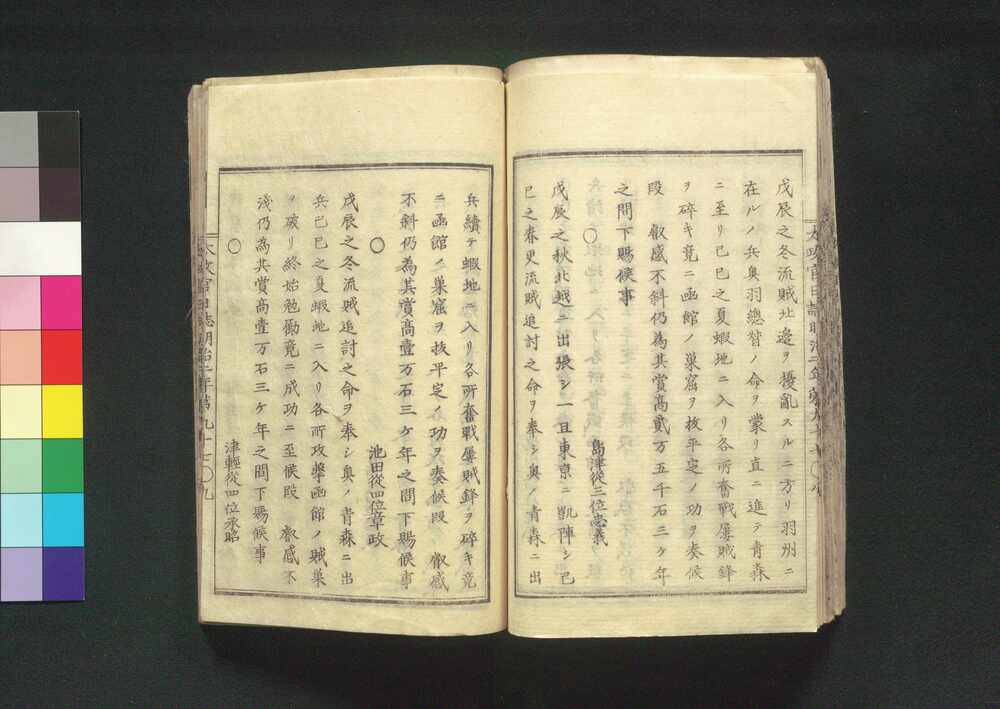 戊辰之冬流賊北邊ヲ擾亂スルニ方リ羽州ニ
在ルノ兵奥羽總督ノ命ヲ蒙リ直ニ進テ青森
ニ至リ己巳之夏蝦地ニ入リ各所奮戰屢賊鋒
ヲ碎キ竟ニ函館ノ巣窟ヲ抜平定ノ功ヲ奏候
段　叡感不斜仍為其賞髙貳万五千石三ケ年
之間下賜候事
○　島津從三位忠義
戊辰之秋北越ニ出張シ一旦東京ニ凱陣シ己
巳之春更流賊追討之命ヲ奉シ奥ノ青森ニ出
兵續テ蝦地ニ入リ各所奮戰屢賊鋒ヲ碎キ竟
ニ函館ノ巣窟ヲ抜平定ノ功ヲ奏候段　叡感
不斜仍為其賞髙壹万石三ケ年之間下賜候事
○　池田從四位章政
戊辰之冬流賊追討之命ヲ奉シ奥ノ青森ニ出
兵己巳之夏蝦地ニ入リ各所攻撃函館ノ賊巣
ヲ破リ終始勉勵竟ニ成功ニ至候段　叡感不
淺仍為其賞髙壹万石三ケ年之間下賜候事
○　津輕從四位承昭
太政官日誌明治二年第九十七○九